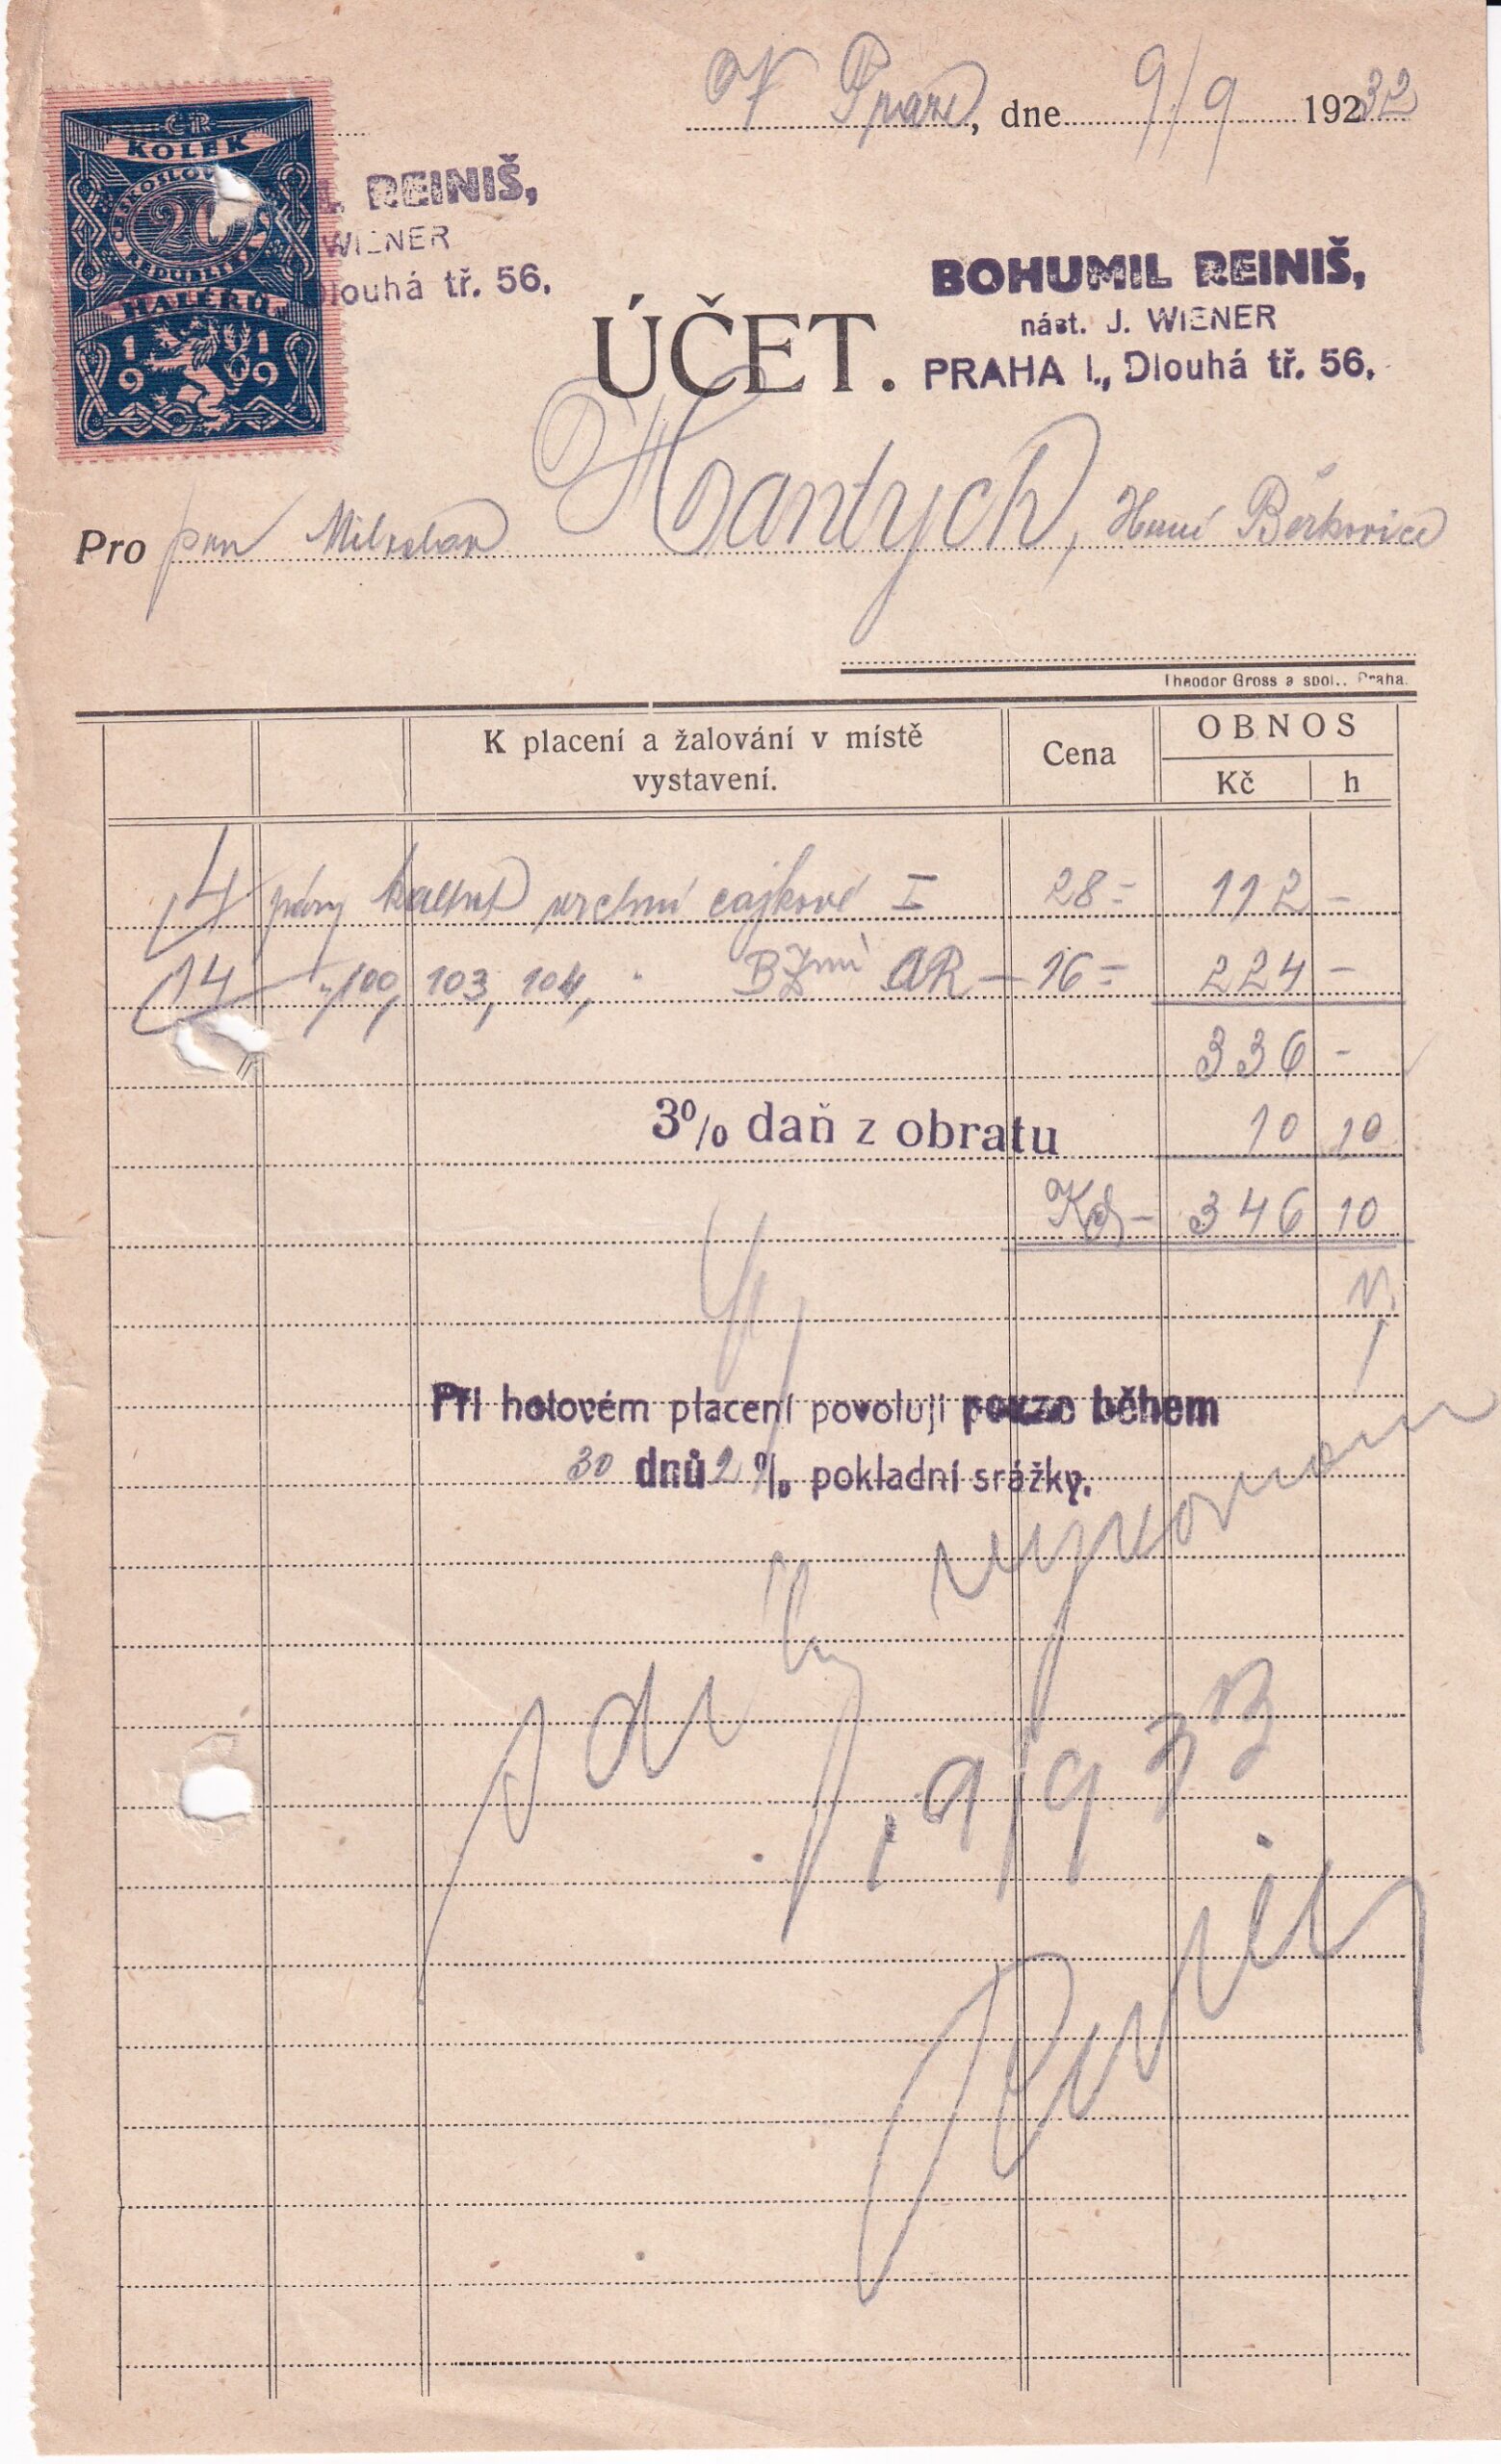 V Praze, dne 9/9 19232
ČR
KOLEK
ČESKOSLOV
20
REPUBLIKA
HALÉŘŮ
19 19
L REINIŠ,
WIENER
Dlouhá tř. 56.
BOHUMIL REINIŠ,
nást. J. WIENER
PRAHA I., Dlouhá tř. 56.
ÚČET.
Pro pan Miloslav Hantych, Horní Beřkovice
Theodor Gross a spol., Praha.
K placení a žalování v místě vystavení.
Cena
OBNOS
Kč h
4 páry kalhot vrchní cajkové I 28= 112 -
14 " 100, 103, 104, " AR - 16= 224 -
336 -
3% daň z obratu 10 10
Kč - 346 10
Při hotovém placení povoluji pouze během
30 dnů 2% pokladní srážky.
9/9 33
Reiniš